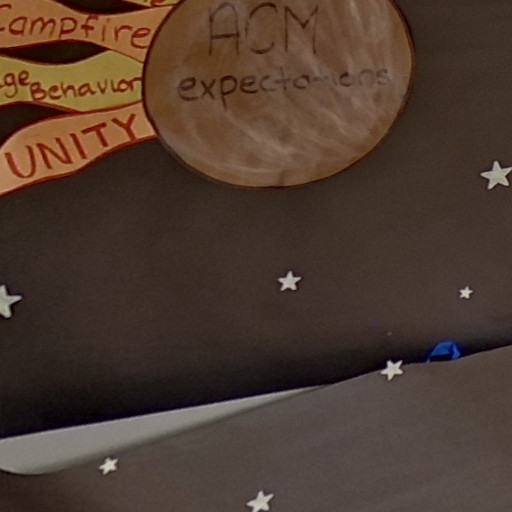 Campfire
Behavior
UNITY
ACM
expectations